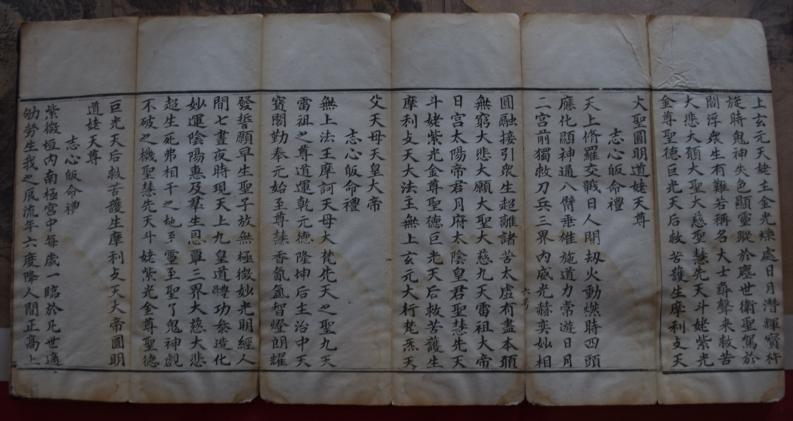 上玄元天姥主金光爍處日月潛輝寳杵
旋時鬼神失色顯靈蹤於塵世衛聖駕於
閻浮衆生有難若稱名大士尋聲来救苦
大悲大願大聖大慈聖慧先天斗姥紫光
金尊聖德巨光天后救苦護生摩利攴天
大聖圓明道姥天尊
志心皈命禮
天上脩羅交戰日人間刼火動燃時四頭
應化顯神通八臂垂慈施道力常遊日月
二宮前獨救刀兵三界內威光赫奕妙相
圓融接引衆生超離諸苦太虚有盡本願
無窮大悲大願大聖大慈九天雷祖大帝
日宮太陽帝君月府太陰皇君聖慧先天
斗姥紫光金尊聖德巨光天后救苦護生
摩利攴天大法王無上玄元大行梵炁天
父天母天皇大帝
志心皈命禮
無上法王摩訶天母大梵先天之聖九天
雷祖之尊道運乾元德隆坤后主治中天
寳閣勤奉元始至尊慧香氤氲智燈朗耀
發誓願早生聖子放無極微妙光明經人
間七晝夜時現天上九皇道體功叅造化
妙運陰陽惠及羣生恩覃三界大慈大悲
超生死弗相干之地至靈至聖了鬼神覷
不破之機聖慧先天斗姥紫光金尊聖德
巨光天后救苦護生摩利攴天大帝圓明
道姥天尊
志心皈命禮
紫微垣内南極宮中每歲一臨於凡世遍
劬勞生我之風流年六度降人間正髙上